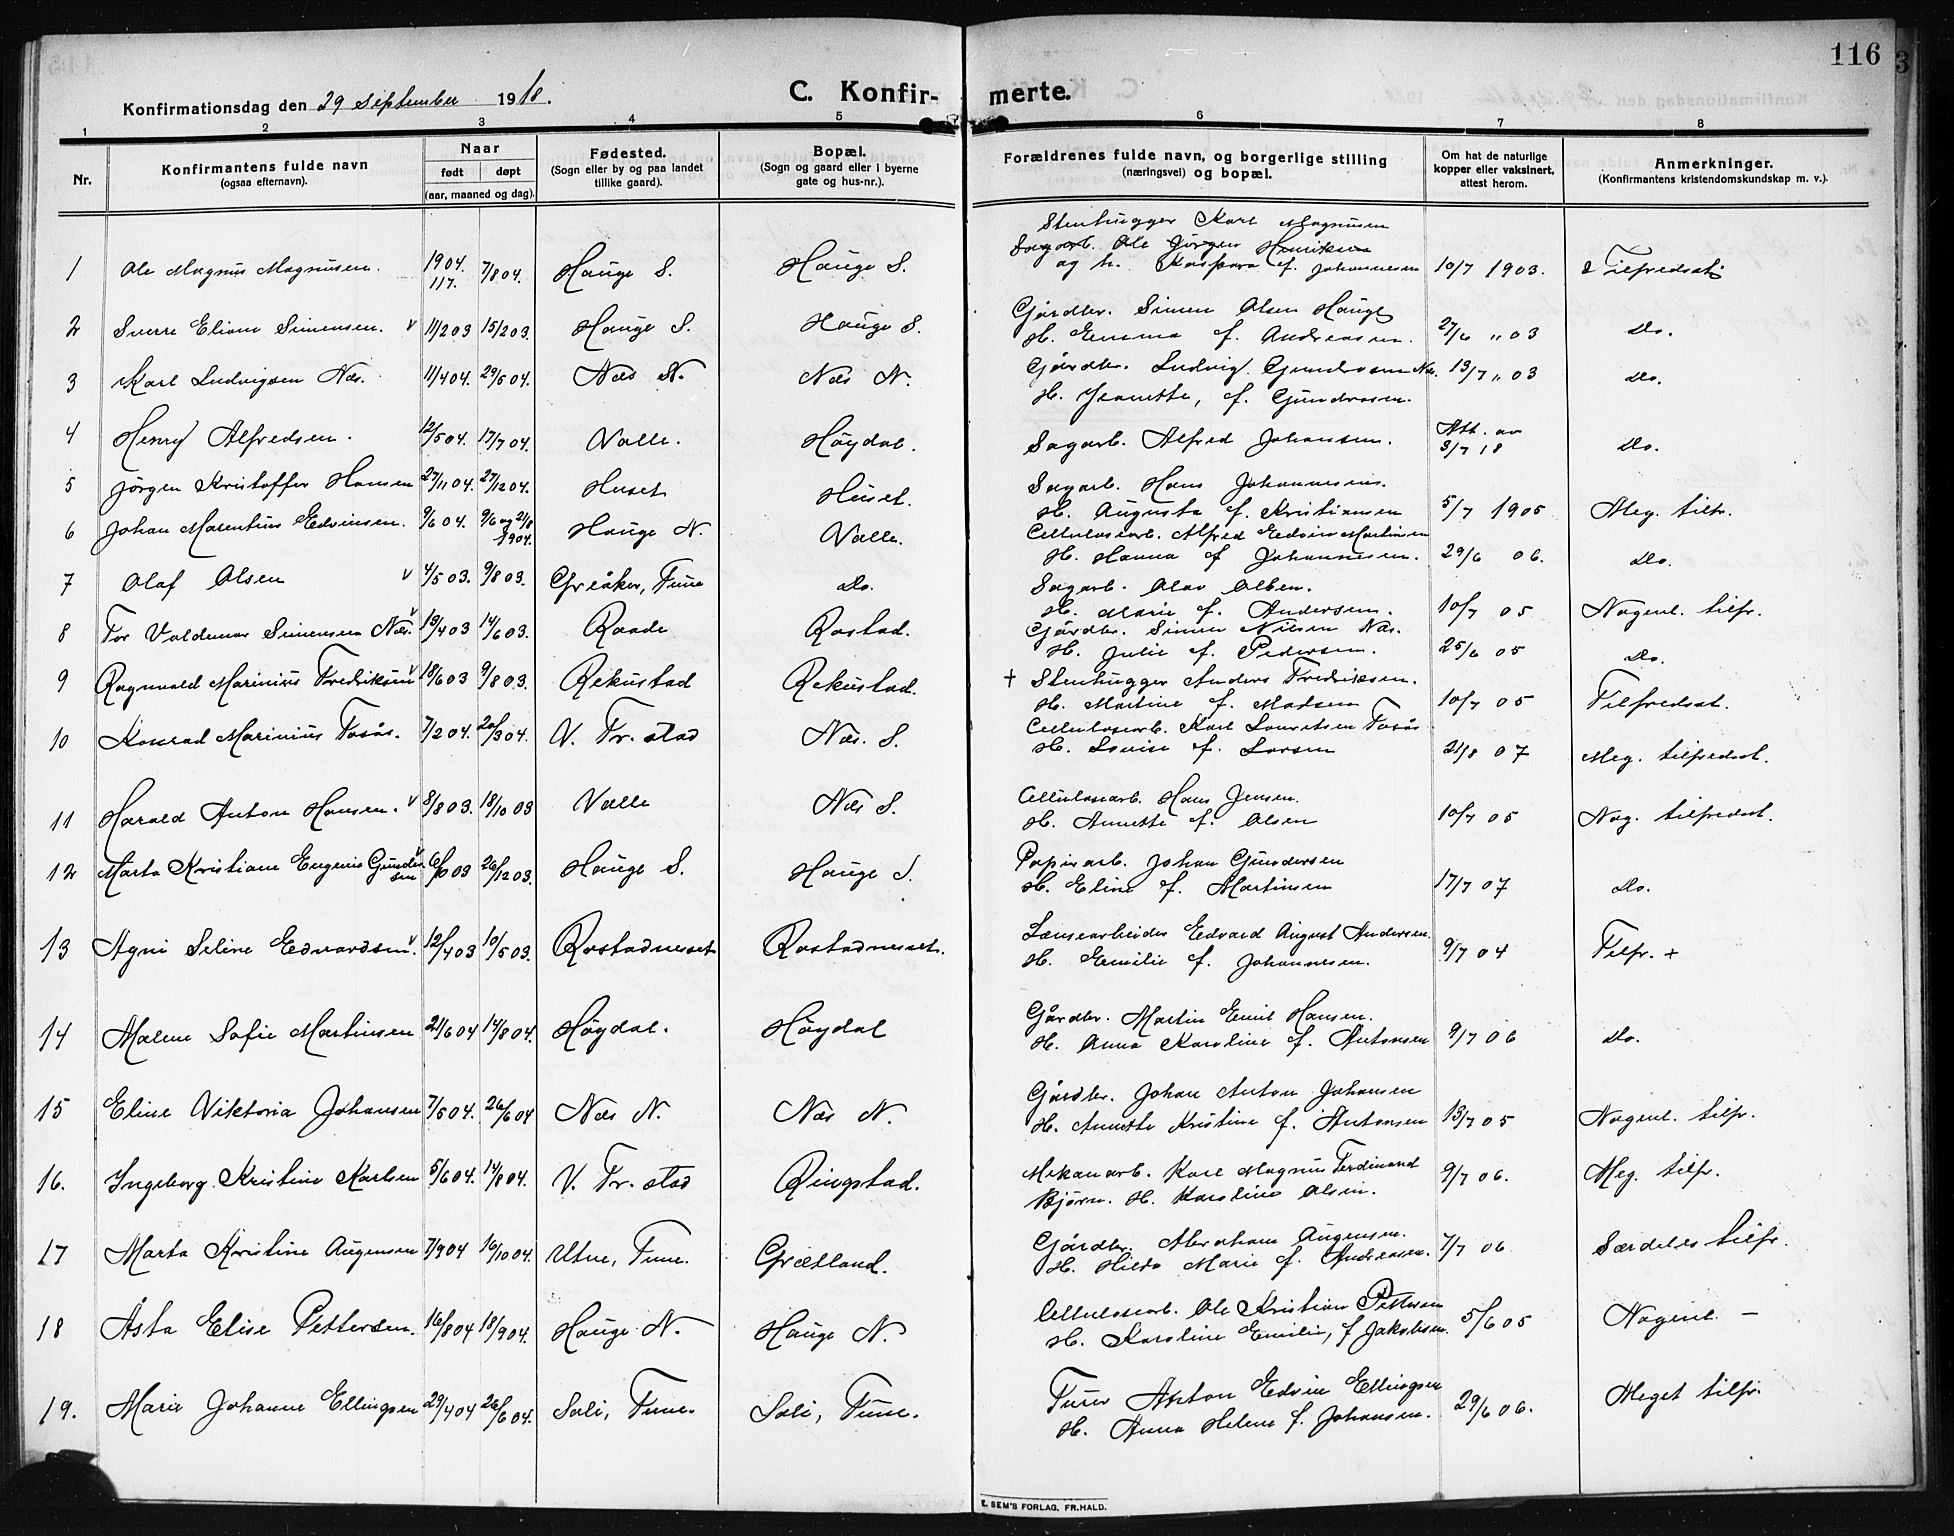 116
Konfirmationsdag den 29 September 1918.
C. Konfirmerte.
1 2 3 4 5 6 7 8
Nr.
Konfirmantens fulde navn
(ogsaa efternavn).
Naar
født døpt
(aar, maaned og dag).
Fødested.
(Sogn eller by og paa landet
tillike gaard).
Bopæl.
(Sogn og gaard eller i byerne
gate og hus-nr.).
Forældrenes fulde navn, og borgerlige stilling
(næringsvei) og bopæl.
Om hat de naturlige
kopper eller vaksinert,
attest herom.
Anmerkninger.
(Konfirmantens kristendomskundskap m. v.).
Stenhugger Karl Magnussen
Sagarb. Ole Jørgen Henriksen
1 Ole Magnus Magnussen. 1904. 11/7. 7/8 04. Hauge S. Hauge S. og h. Kaspara f. Johannesen 10/7 1903. Tilfredsst.
Gårdbr. Simen Olsen Hauge
2 Sverre Eliam Simensen. v 11/2 03 15/2 03. Hauge S. Hauge S. H. Emma f. Andreasen. 27/6 " 03 Do.
3 Karl Ludvigsen Næs. 11/4 04. 29/5 04. Næs N. Næs N. Gårdbr. Ludvig Gundersen Næs. 13/7 " 03 Do.
H. Jeanette, f. Gundersen.
4 Henry Alfredsen. 12/5 04. 17/7 04. Valle. Høydal. Sagarb. Alfred Johansen. Att. av 3/7 18 Do.
5 Jørgen Kristoffer Hansen 27/11 04. 27/12 04. Huset Huset. Sagarb. Hans Johannesen.
H. Augusta f. Kristiansen 5/7 1905 Meg. tilfr.
6 Johan Marentius Edvinsen. 9/6 04. 9/6 og 21/8 1904. Hauge N. Valle. Cellulosearb. Alfred Edvin Martinsen
H. Hanna f. Johannesen. 29/6 06. Do.
7 Olaf Olsen v 4/5 03. 9/8 03. Greåker, Tune Do. Sagarb. Olav Olsen.
H. Marie f. Andersen. 10/7 05 Nogenl. tilfr.
8 Tor Valdemar Simensen Næs. v 13/4 03 14/6 03. Raade Rostad. Gårdbr. Simen Nilsen Næs.
H. Julie f. Pedersen. 25/6 05 Do.
9 Ragnvald Marinius Fredriksen v 18/6 03 9/8 03. Rekustad Rekustad. + Stenhugger Anders Fredriksen.
H. Martine f. Madsen 10/7 05 Tilfredsst.
10 Konrad Marinius Tosås. 7/2 04. 20/3 04. V. Fr. stad Næs. S. Cellulosearb. Karl Lauritsen Tosås
H. Lovise f. Larsen 21/8 07 Meg. tilfredsst.
11 Harald Anton Hansen. v 8/8 03. 18/10 03 Valle Næs S. Cellulosearb. Hans Jensen.
H. Annette f. Olsen 10/7 05 Nog. tilfredsst.
12 Marta Kristiane Eugenie Gundersen v 6/10 03 26/12 03. Hauge S. Hauge S. Papirarb. Johan Gundersen
H. Eline f. Martinsen 17/7 07 Do.
13 Agni Seline Edvardsen. v 12/4 03 10/5 03. Rostadnesset Rostadnesset. Lænsearbeider Edvard August Andersen.
H. Emilie f. Johannesen. 9/7 04 Tilfr. +
14 Malene Sofie Martinsen 21/6 04 14/8 04. Høydal. Høydal Gårdbr. Martin Emil Hansen.
H. Anna Karoline f. Antonsen 9/7 06 Do.
15 Eline Viktoria Johansen 7/5 04. 26/6 04 Næs N. Næs N. Gårdbr. Johan Anton Johansen
H. Annette Kristine f. Antonsen 13/7 05 Nogenl. tilfr.
16. Ingeborg Kristine Karlsen 5/6 04. 14/8 04. V. Fr. stad Ringstad. Mekan arb. Karl Magnus Ferdinand
Bjørn. H. Karoline Olsen. 9/7 06. Meg. tilfr.
17 Marta Kristine Augensen 7/9 04 16/10 04. Utne, Tune. Grætland. Gårdbr. Abraham Augensen.
H. Hilda Marie f. Andreasen. 7/7 06 Særdeles tilfr.
18 Åsta Elise Pettersen. 16/8 04 18/9 04. Hauge N. Hauge N. Cellulosearb. Ole Kristian Pettersen
H. Karoline Emilie, f Jakobsen. 5/6 05 Nogenl. —
19. Marie Johanne Ellingsen 29/4 04 26/6 04. Soli, Tune. Soli, Tune. Anton Edvin Ellingsen
H. Anna Helene f. Johansen. 29/6 06. Meget tilfr.
E. SEM'S FORLAG, FR.HALD.